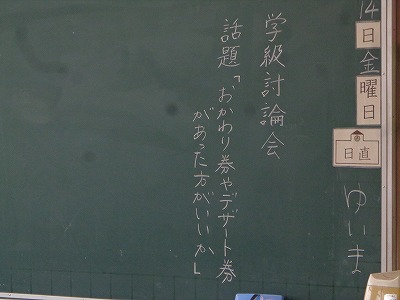 14日金曜日
日直
ゆいま
学級討論会
話題「おかわり券やデザート券
があった方がいいか」